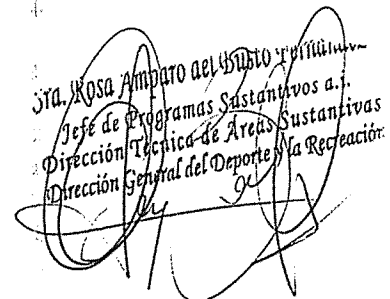 Sra. Rosa Amparo del Busto
Jefe de Programas Sustantivos a.i.
Dirección Técnica de Areas Sustantivas
Dirección General del Deporte y la Recreación